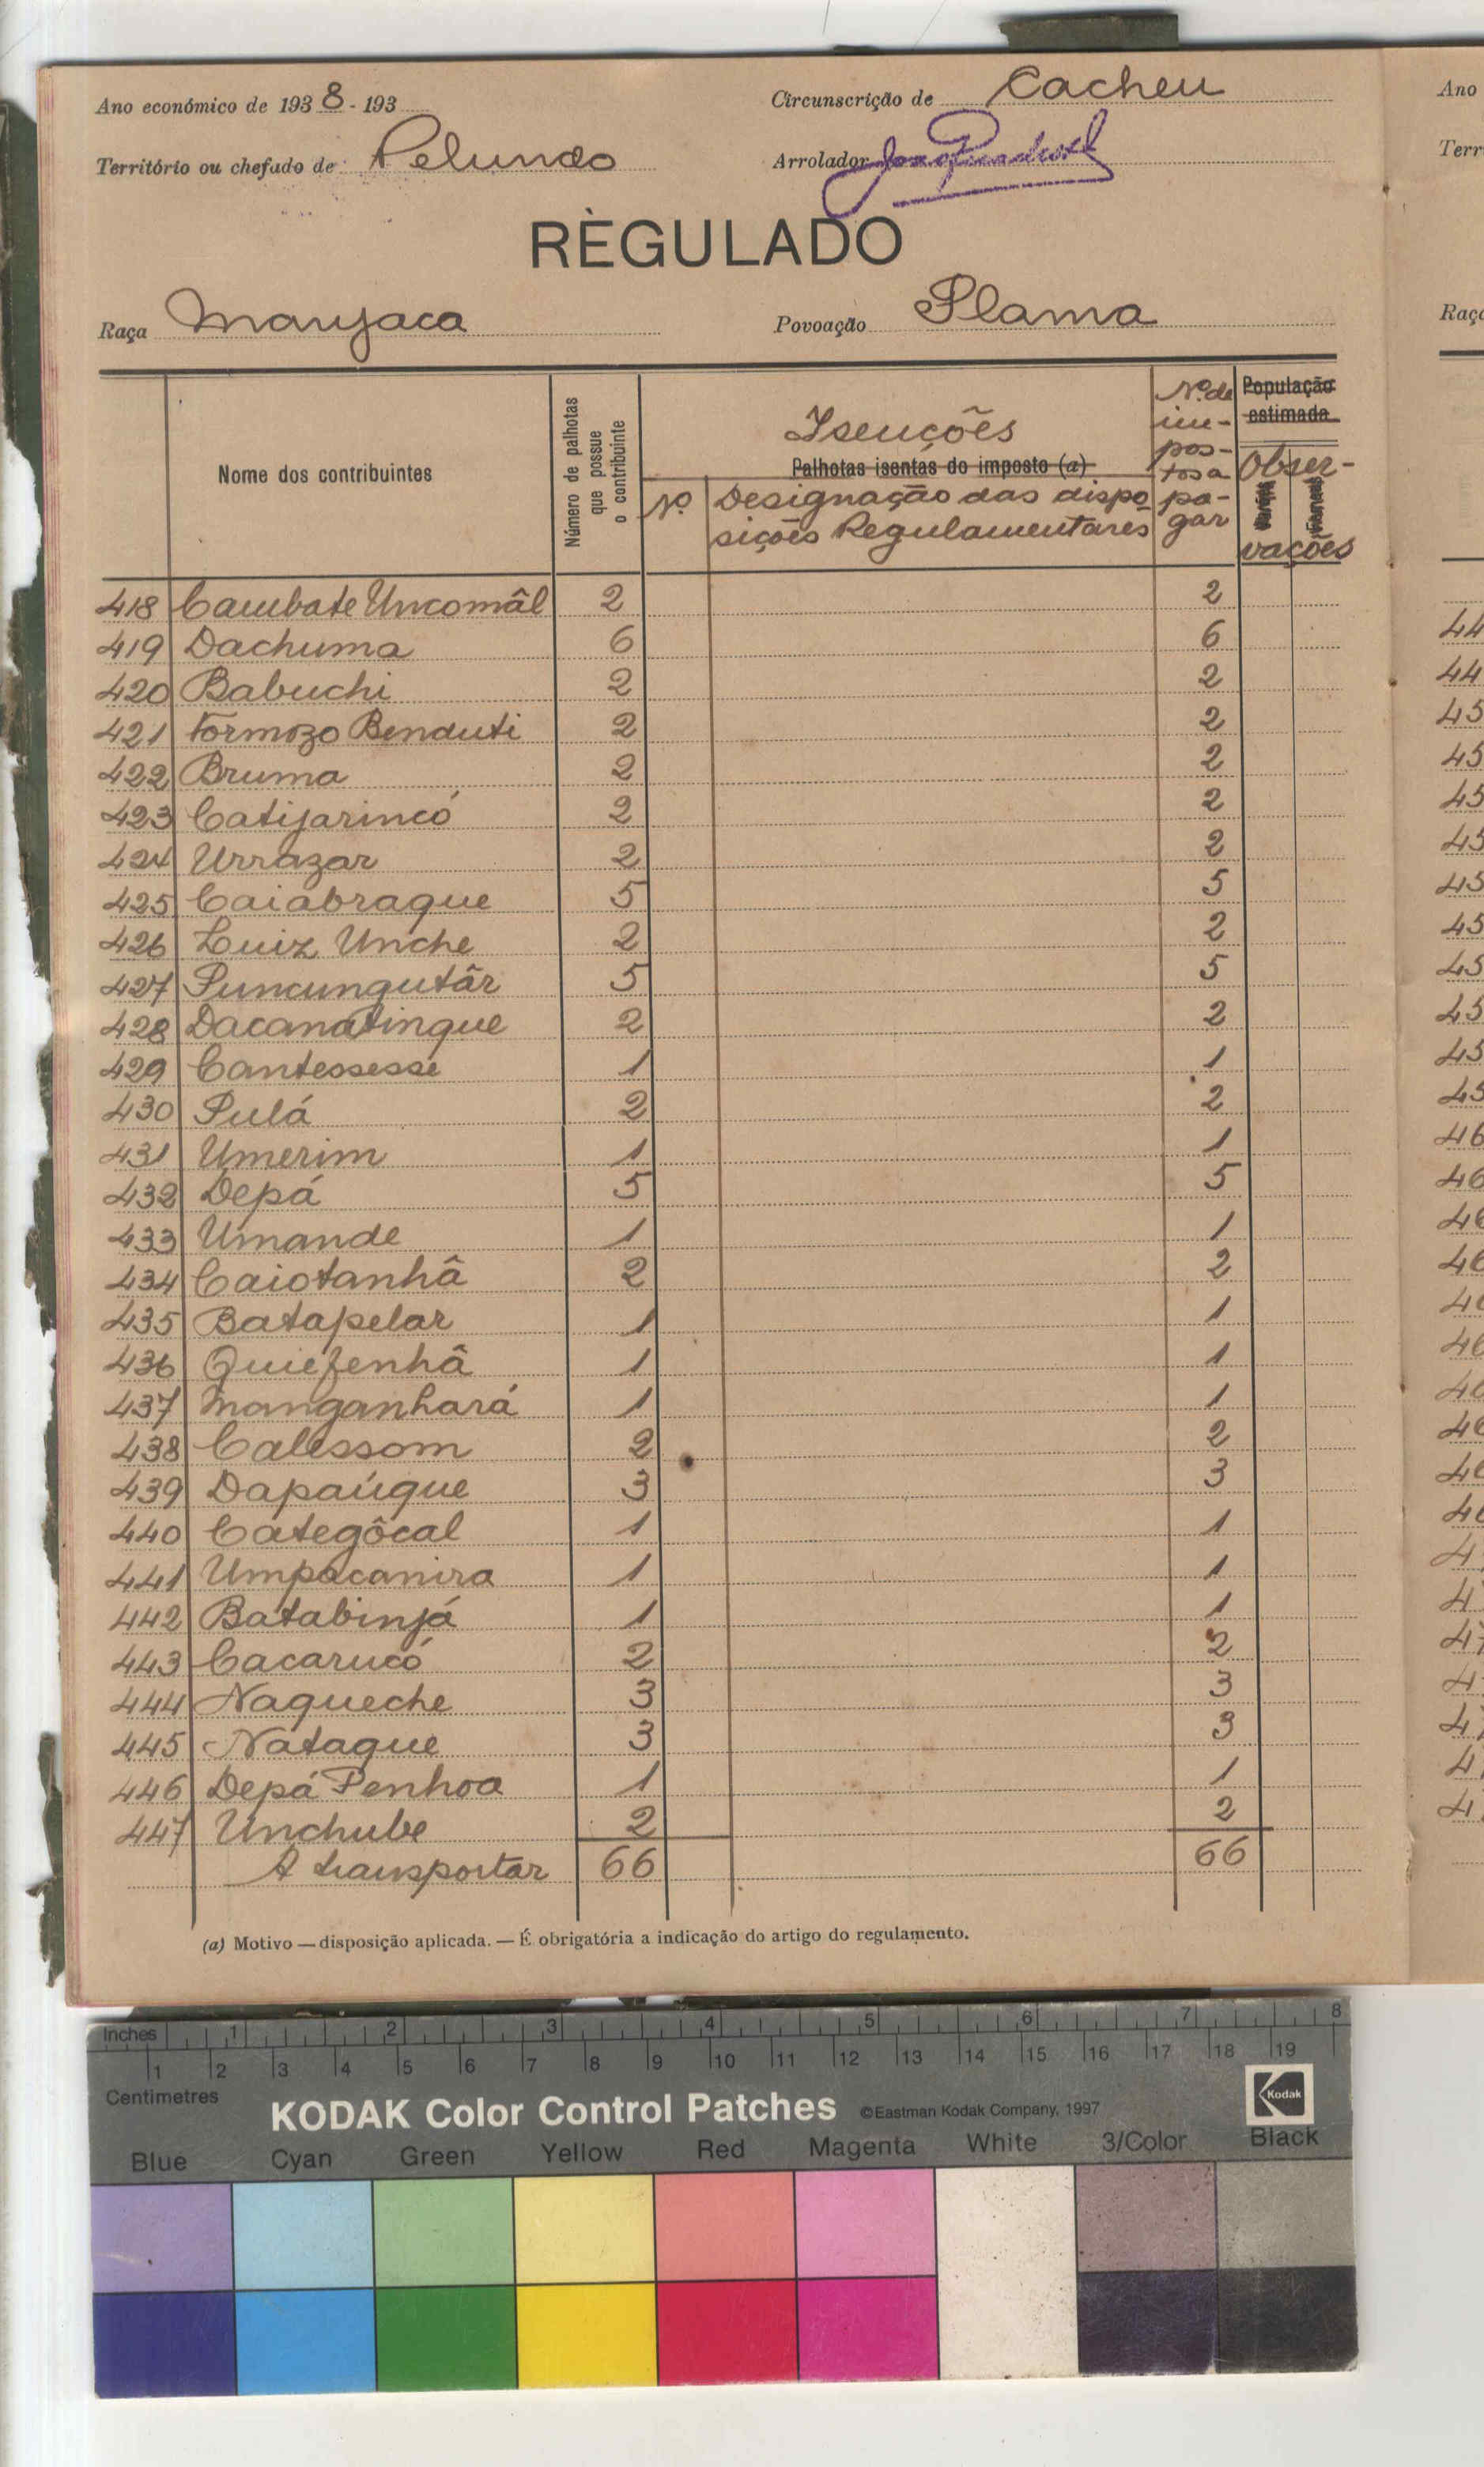 Ano económico de 1938-193
Circunscrição de Cacheu
Território ou chefado de Pelundo
Arrolador
REGULADO
Raça Manjaca
Povoação Plama
Nome dos contribuintes
Número de palhotas que possue o contribuinte
Isenções
Palhotas isentas do imposto (a)
Nº
Designação das dispo
sições Regulamentares
Nº de
im-
pos-
tos a
pa-
gar
População
estimada
Obser-
vações
418 Cambate Uncomâl 2 2
419 Dachuma 6 6
420 Babuchi 2 2
421 Formozo Benduti 2 2
422 Bruma 2 2
423 Catijarincó 2 2
424 Urrazar 2 2
425 Caiabraque 5 5
426 Luiz Unche 2 2
427 Puncungutâr 5 5
428 Dacanatinque 2 2
429 Canteosesse 1 1
430 Pulá 2 2
431 Umerim 1 1
432 Depá 5 5
433 Umande 1 1
434 Caiotanhâ 2 2
435 Batapelar 1 1
436 Quiefenhâ 1 1
437 Manganhará 1 1
438 Calessom 2 2
439 Dapaúque 3 3
440 Categôcal 1 1
441 Umpacanira 1 1
442 Batabinjá 1 1
443 Cacarucó 2 2
444 Naqueche 3 3
445 Nataque 3 3
446 Depá Penhoa 1 1
447 Unchube 2 2
A transportar 66 66
(a) Motivo — disposição aplicada. — É obrigatória a indicação do artigo do regulamento.
Ano
Inches 1 2 3 4 5 6 7 8
1 2 3 4 5 6 7 8 9 10 11 12 13 14 15 16 17 18 19
Centimetres
KODAK Color Control Patches ©Eastman Kodak Company, 1997 Kodak
Blue Cyan Green Yellow Red Magenta White 3/Color Black